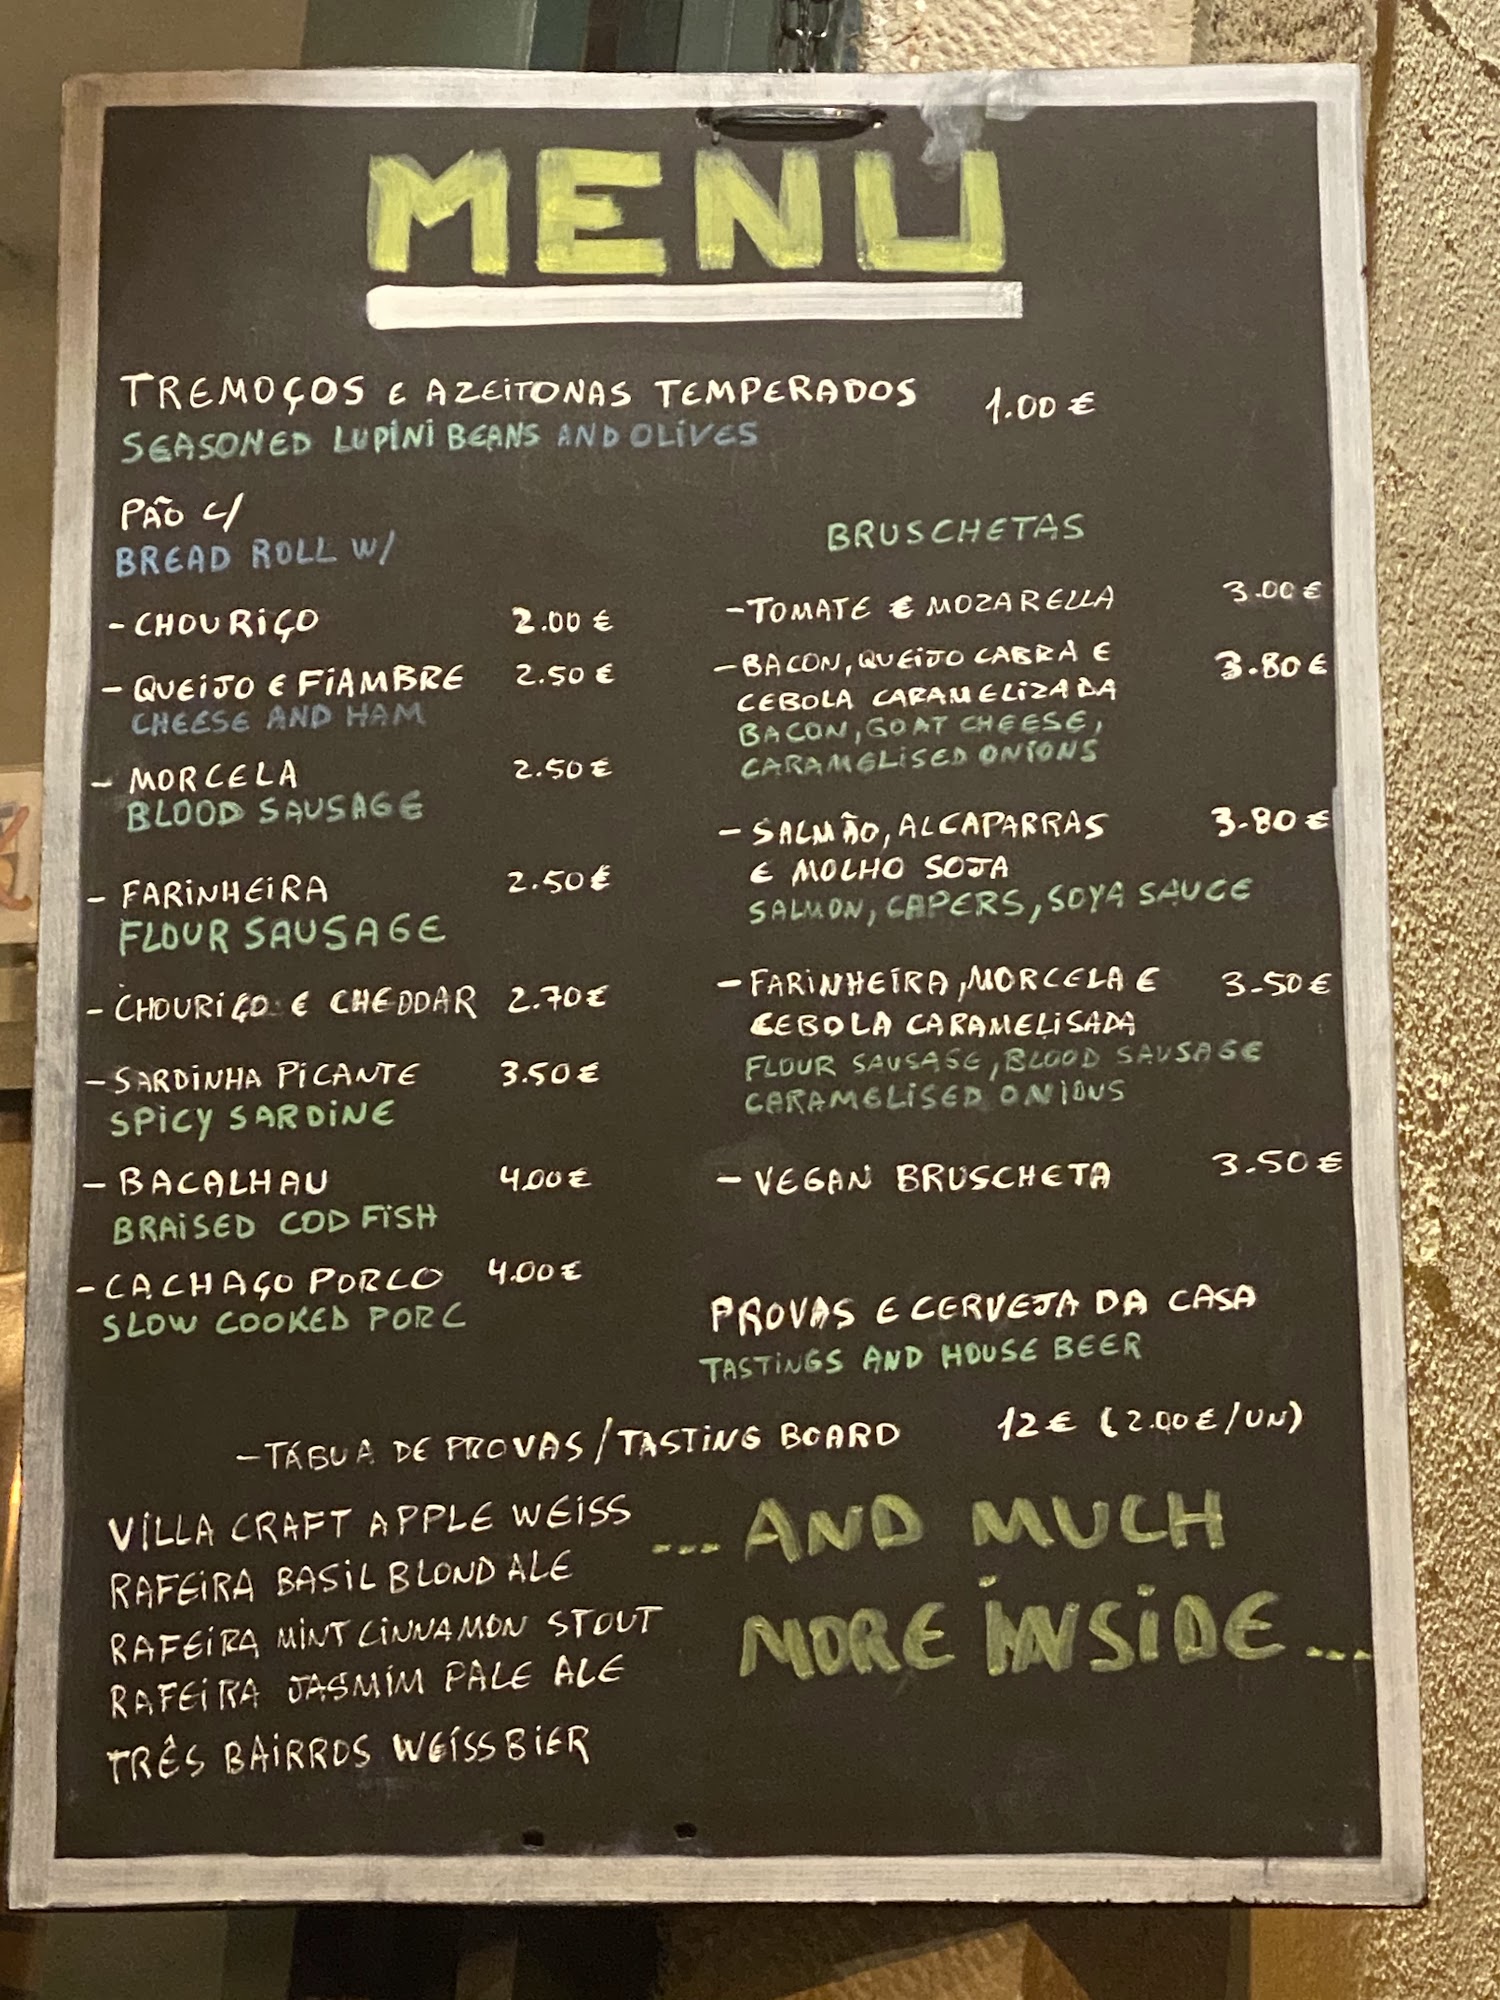 MENU
TREMOÇOS E AZEITONAS TEMPERADOS 1.00 €
SEASONED LUPINI BEANS AND OLIVES
PÃO C/
BREAD ROLL W/
- CHOURIÇO 2.00 €
- QUEIJO E FIAMBRE 2.50 €
CHEESE AND HAM
- MORCELA 2.50 €
BLOOD SAUSAGE
- FARINHEIRA 2.50 €
FLOUR SAUSAGE
- CHOURIÇO E CHEDDAR 2.70 €
- SARDINHA PICANTE 3.50 €
SPICY SARDINE
- BACALHAU 4.00 €
BRAISED COD FISH
- CACHAÇO PORCO 4.00 €
SLOW COOKED PORC
BRUSCHETAS
- TOMATE E MOZARELLA 3.00 €
- BACON, QUEIJO CABRA E 3.80 €
CEBOLA CARAMELIZADA
BACON, GOAT CHEESE,
CARAMELISED ONIONS
- SALMÃO, ALCAPARRAS 3.80 €
E MOLHO SOJA
SALMON, CAPERS, SOYA SAUCE
- FARINHEIRA, MORCELA E 3.50 €
CEBOLA CARAMELISADA
FLOUR SAUSAGE, BLOOD SAUSAGE
CARAMELISED ONIONS
- VEGAN BRUSCHETA 3.50 €
PROVAS E CERVEJA DA CASA
TASTINGS AND HOUSE BEER
- TÁBUA DE PROVAS / TASTING BOARD 12 € (2.00 € / UN)
VILLA CRAFT APPLE WEISS
RAFEIRA BASIL BLOND ALE
RAFEIRA MINT CINNAMON STOUT
RAFEIRA JASMIM PALE ALE
TRÊS BAIRROS WEISSBIER
... AND MUCH
MORE INSIDE ...